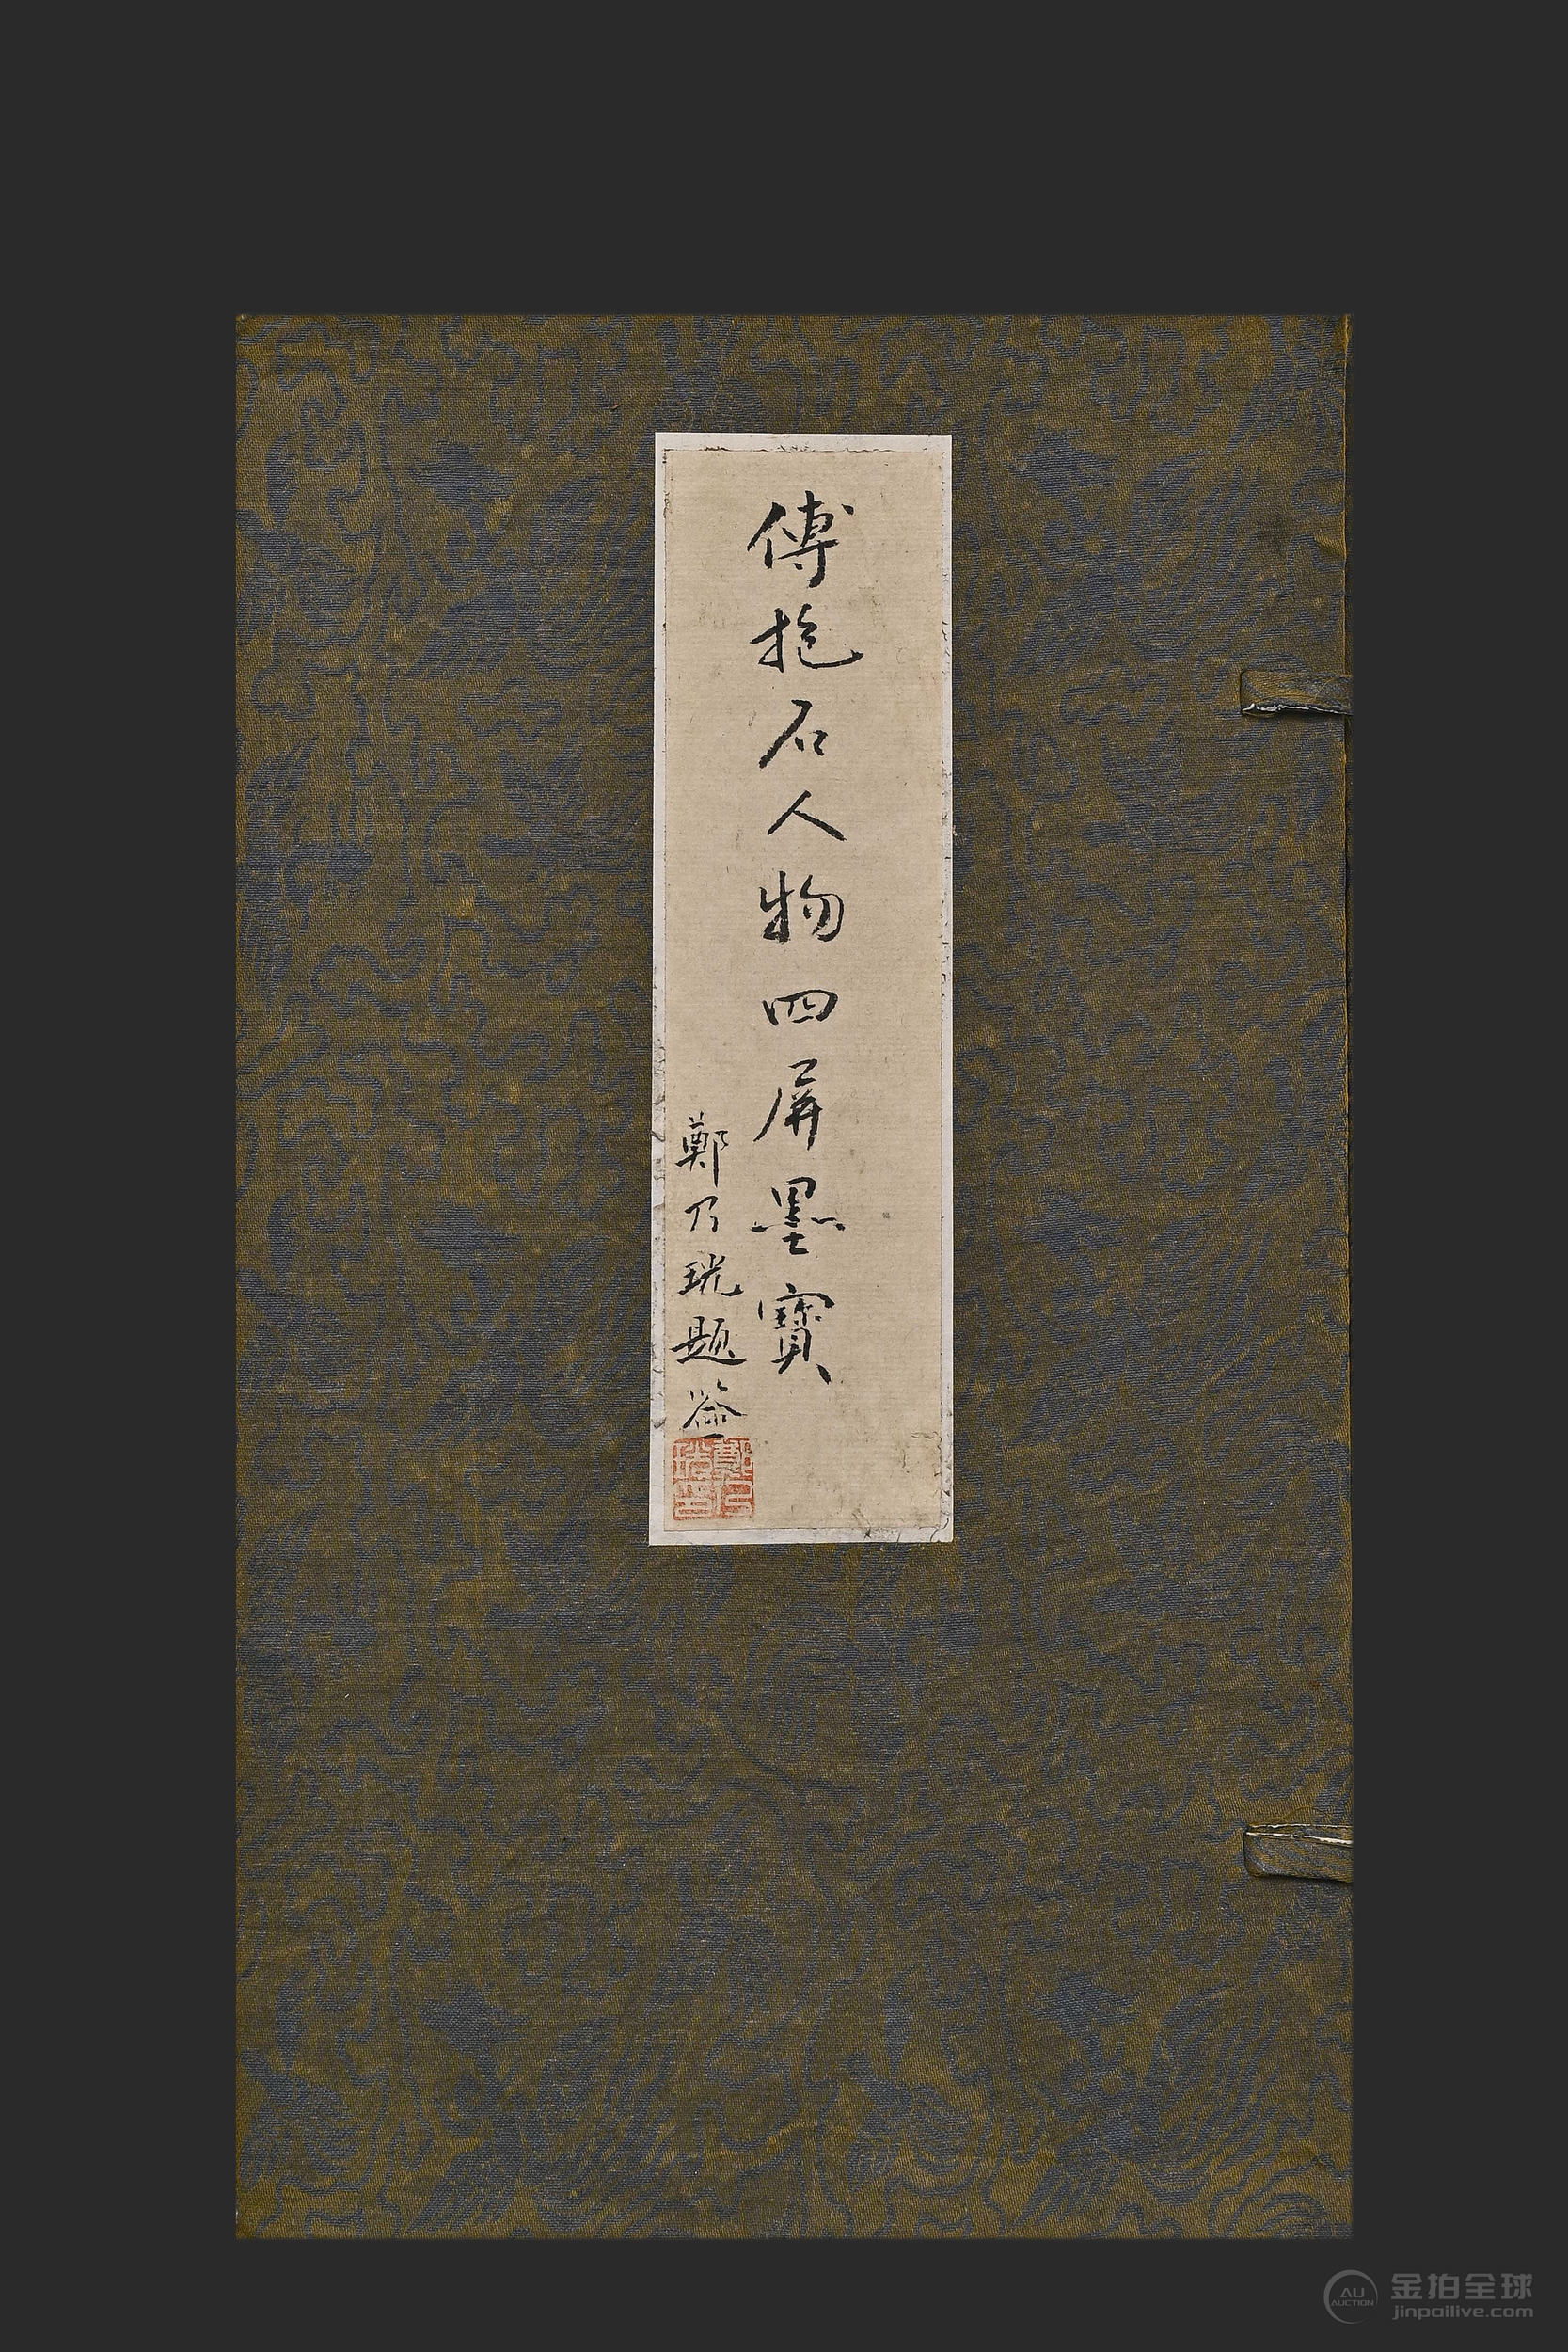 傅抱石人物四屏墨寶
鄭乃珖題簽
鄭乃珖印
AU
AUCTION
金拍全球
jinpailive.com